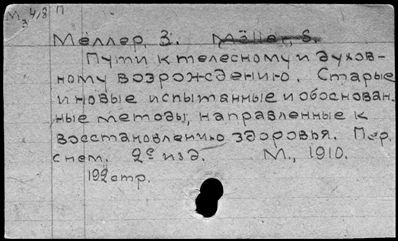 М 4/8 П
3
Мёллер, З. Möller, S.
Пути к телесному и духов-
ному возрождению. Старые
и новые испытанные и обоснован.
ные методы, направленные к
восстановлению здоровья. Пер.
с нем. 2е изд. М., 1910.
192 стр.